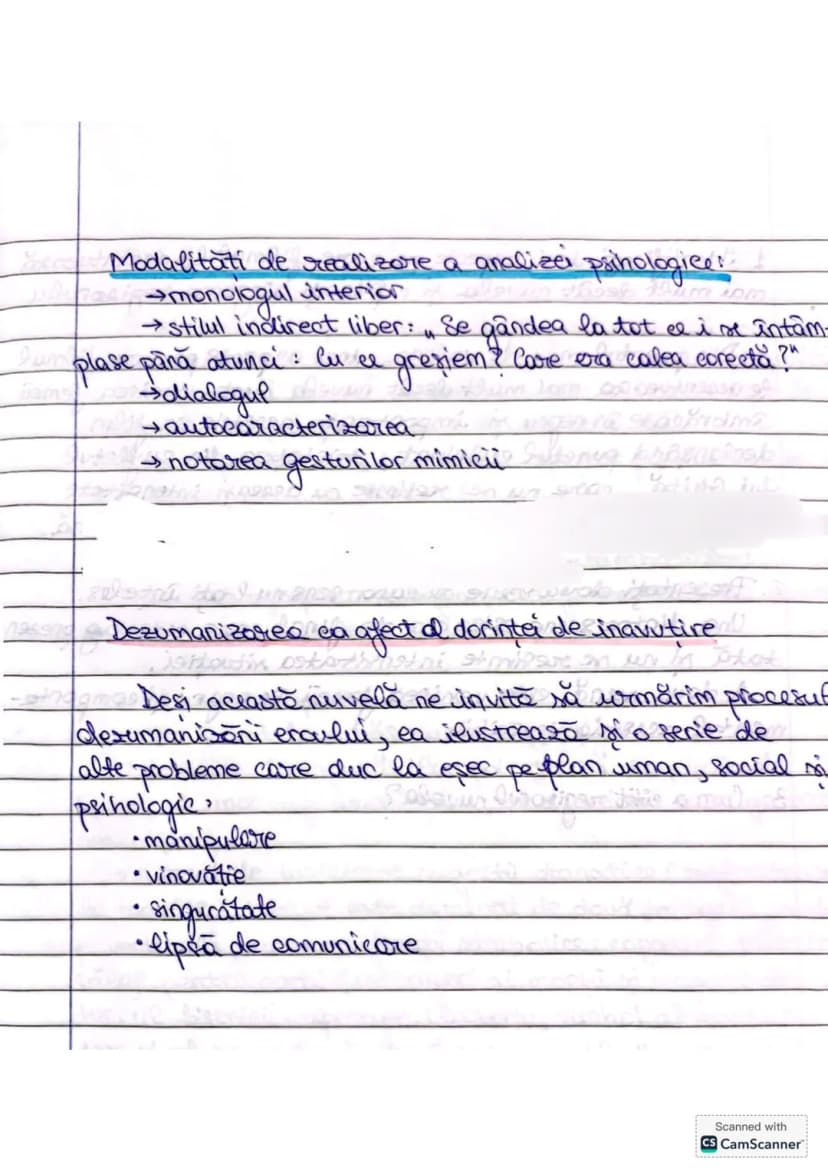 Modalități de realizare a analizei psihologice:
→monologul interior
→stilul indirect liber: „Se gândea la tot ce i se întâm-
plase până atunci: Cu ce greșiem? Care era calea corectă?"
→dialogul
→autocaracterizarea
→notarea gesturilor mimicii
Dezumanizarea ca afect al dorinței de înavuțire
Deși această nuvelă ne invită să urmărim procesul
dezumanizării eroului, ea ilustrează și o serie de
alte probleme care duc la eșec pe plan uman, social și
psihologic:
•manipulare
•vinovăție
•singurătate
•lipsă de comunicare
Scanned with
CS CamScanner